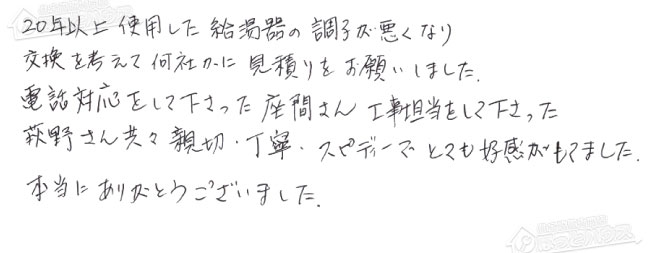 20年以上使用した給湯器の調子が悪くなり
交換を考えて何社かに見積りをお願いしました。
電話対応をして下さった座間さん工事担当をして下さった
萩野さん共々親切・丁寧・スピディーでとても好感がもてました。
本当にありがとうございました。